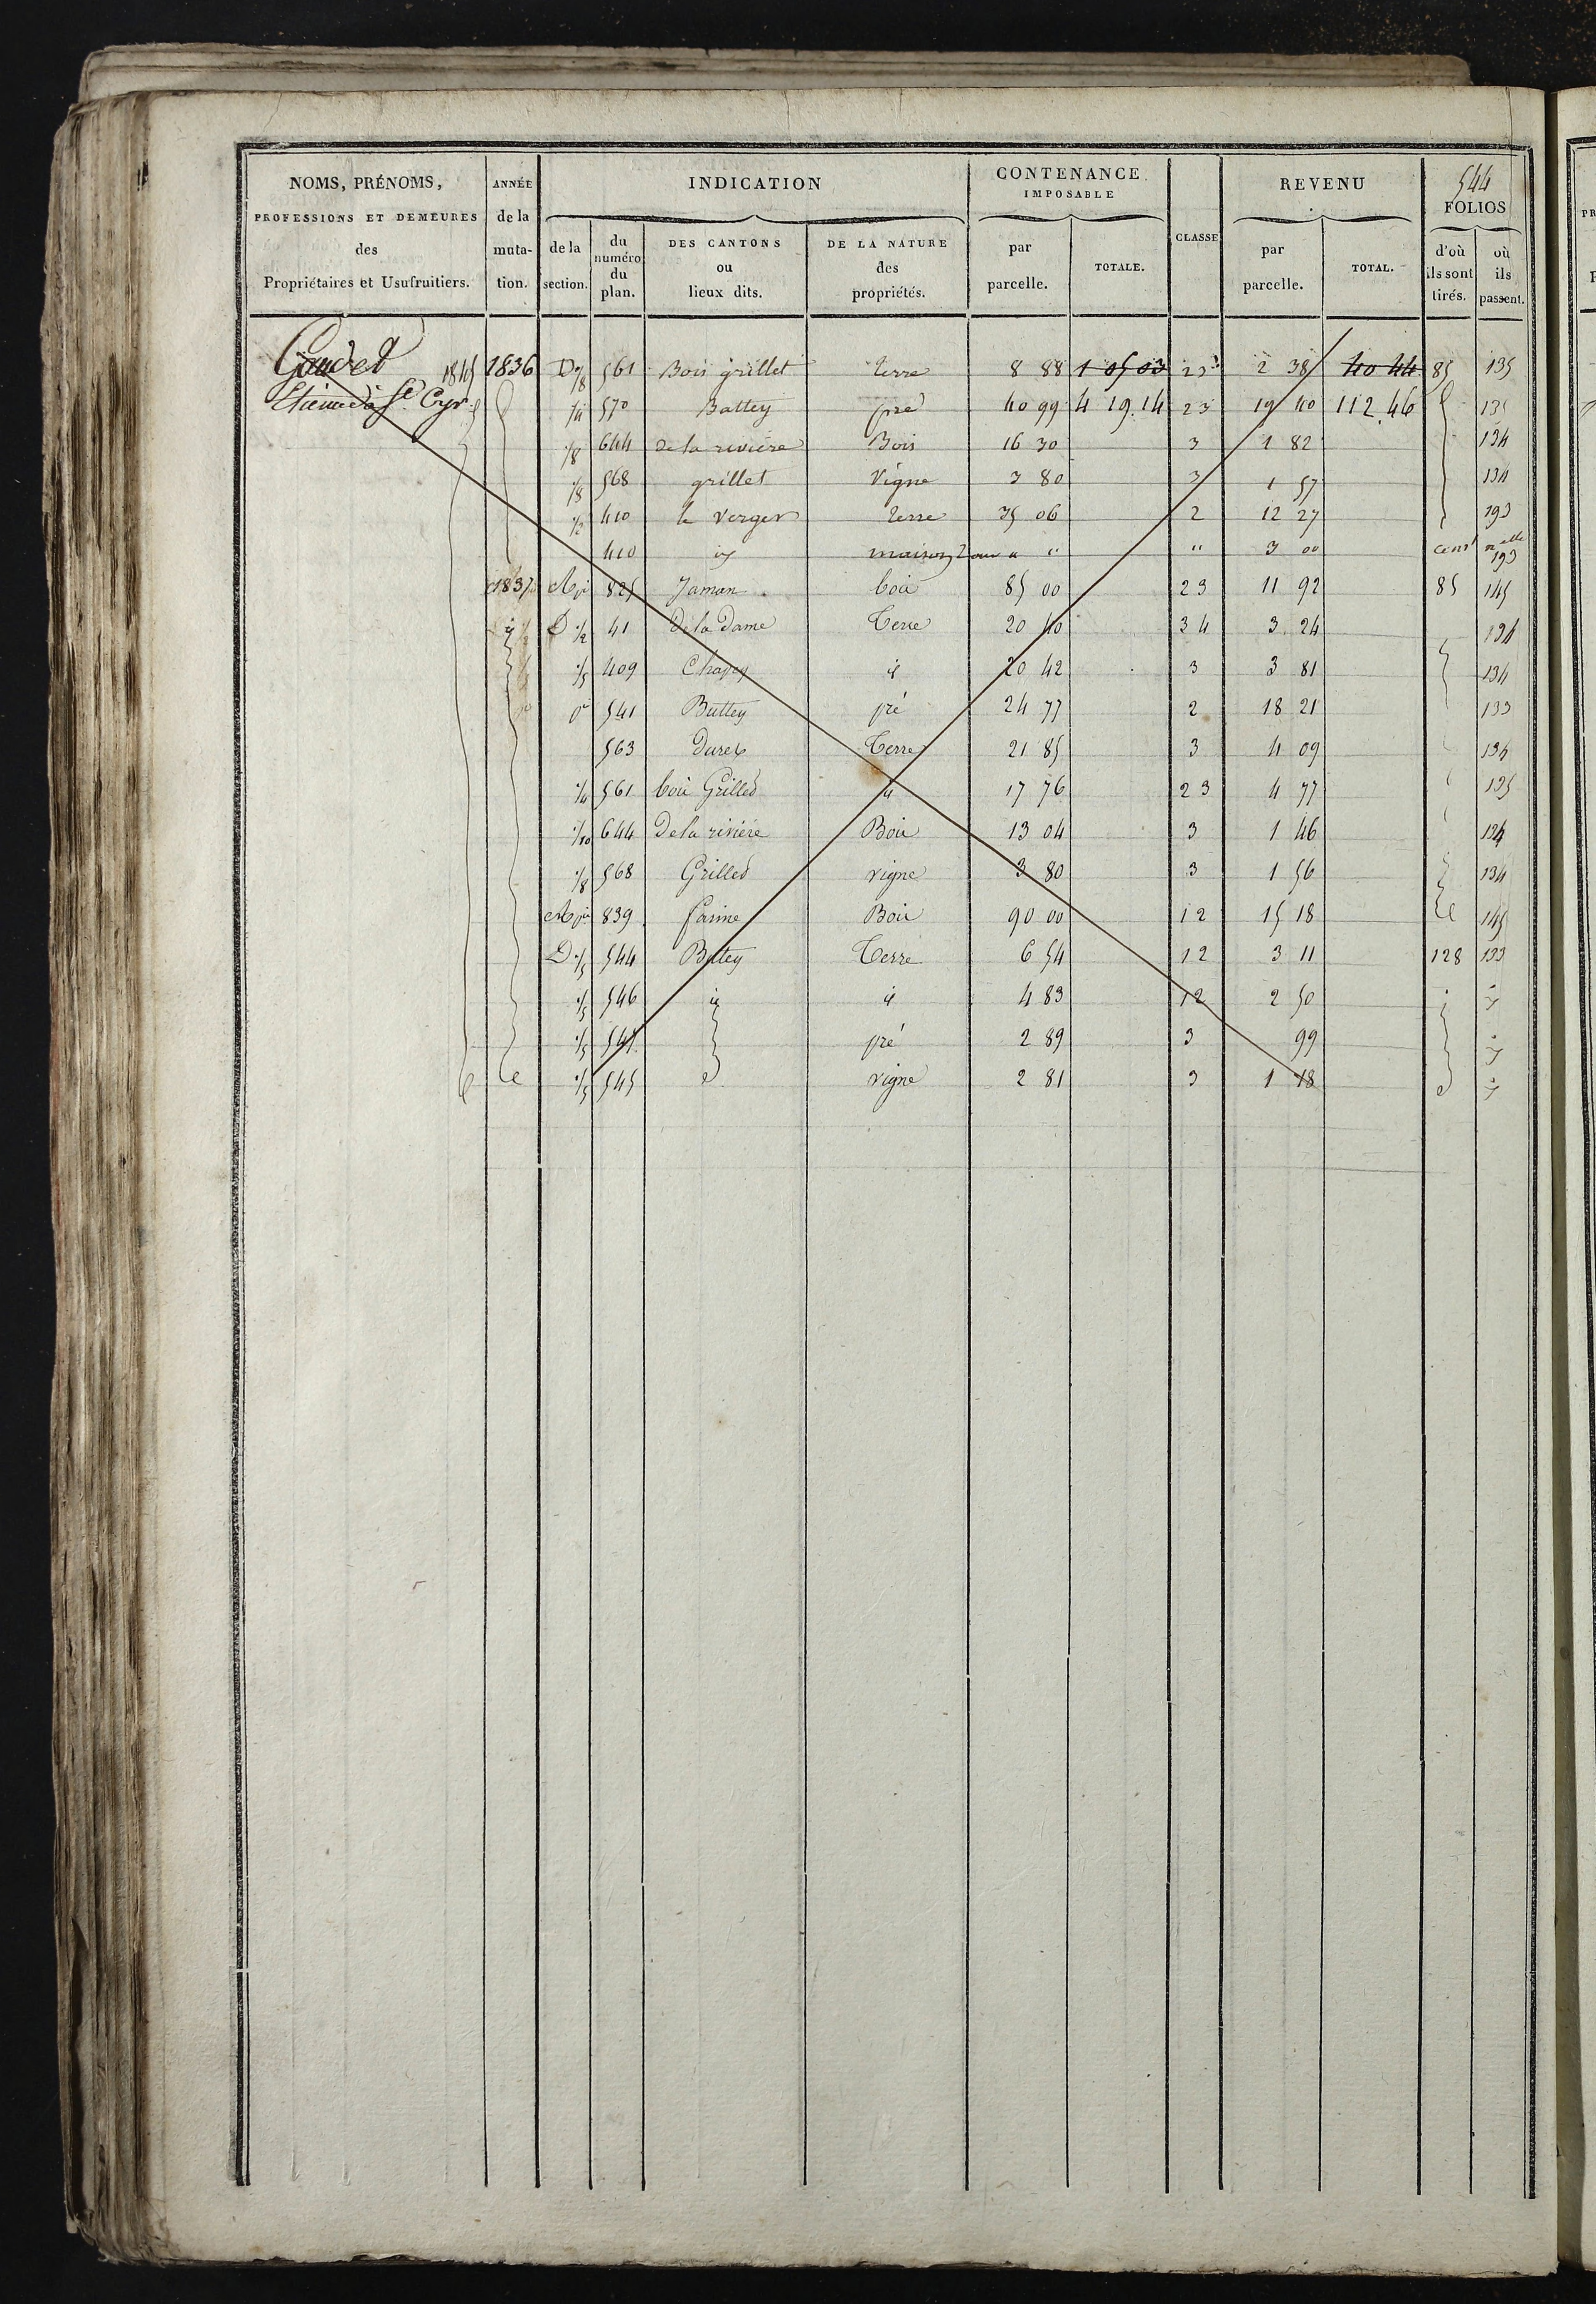 544
NOMS, PRÉNOMS, PROFESSIONS ET DEMEURES des Propriétaires et Usufruitiers.
ANNÉE de la muta- tion.
INDICATION
de la section.
du numéro du plan.
DES CANTONS ou lieux dits.
DE LA NATURE des propriétés.
CONTENANCE IMPOSABLE
par parcelle.
TOTALE.
CLASSE
REVENU
par parcelle.
TOTAL.
FOLIOS
d'où ils sont tirés.
où ils passent.
Gaudet 1845 1836 D 1/8 561 Bois grillet terre 8 88 1 05 03 23 2 38 40 44 85 135
Etienne à St Cyr 1/4 570 Battey pré 40 99 4 19.14 23 19 40 112.46 135
1/8 644 de la rivière Bois 16 30 3 1 82 134
1/8 568 grillet Vigne 3 80 3 1 57 134
1/2 410 le verger terre 35 06 2 12 27 193
410 id maison 2 " " " 3 00 193
1837 825 Jaman bois 85 00 23 11 92 85 145
id D 1/2 41 De la Dame Terre 20 40 34 3 24 134
1/5 409 Chapey id 20 42 3 3 81 134
541 Battey pré 24 77 2 18 21 133
563 Duret Terre 21 85 3 4 09 134
1/4 561 bois Grilled id 17 76 23 4 77 135
1/10 644 De la rivière Bois 13 04 3 1 46 134
1/8 568 Grilled vigne 3 80 3 1 56 134
839 farine Bois 90 00 12 15 18 145
D 1/5 544 Battey Terre 6 54 12 3 11 128 133
1/5 546 id id 4 83 12 2 50
1/5 pré 2 89 3 99
1/5 545 vigne 2 81 3 1 18